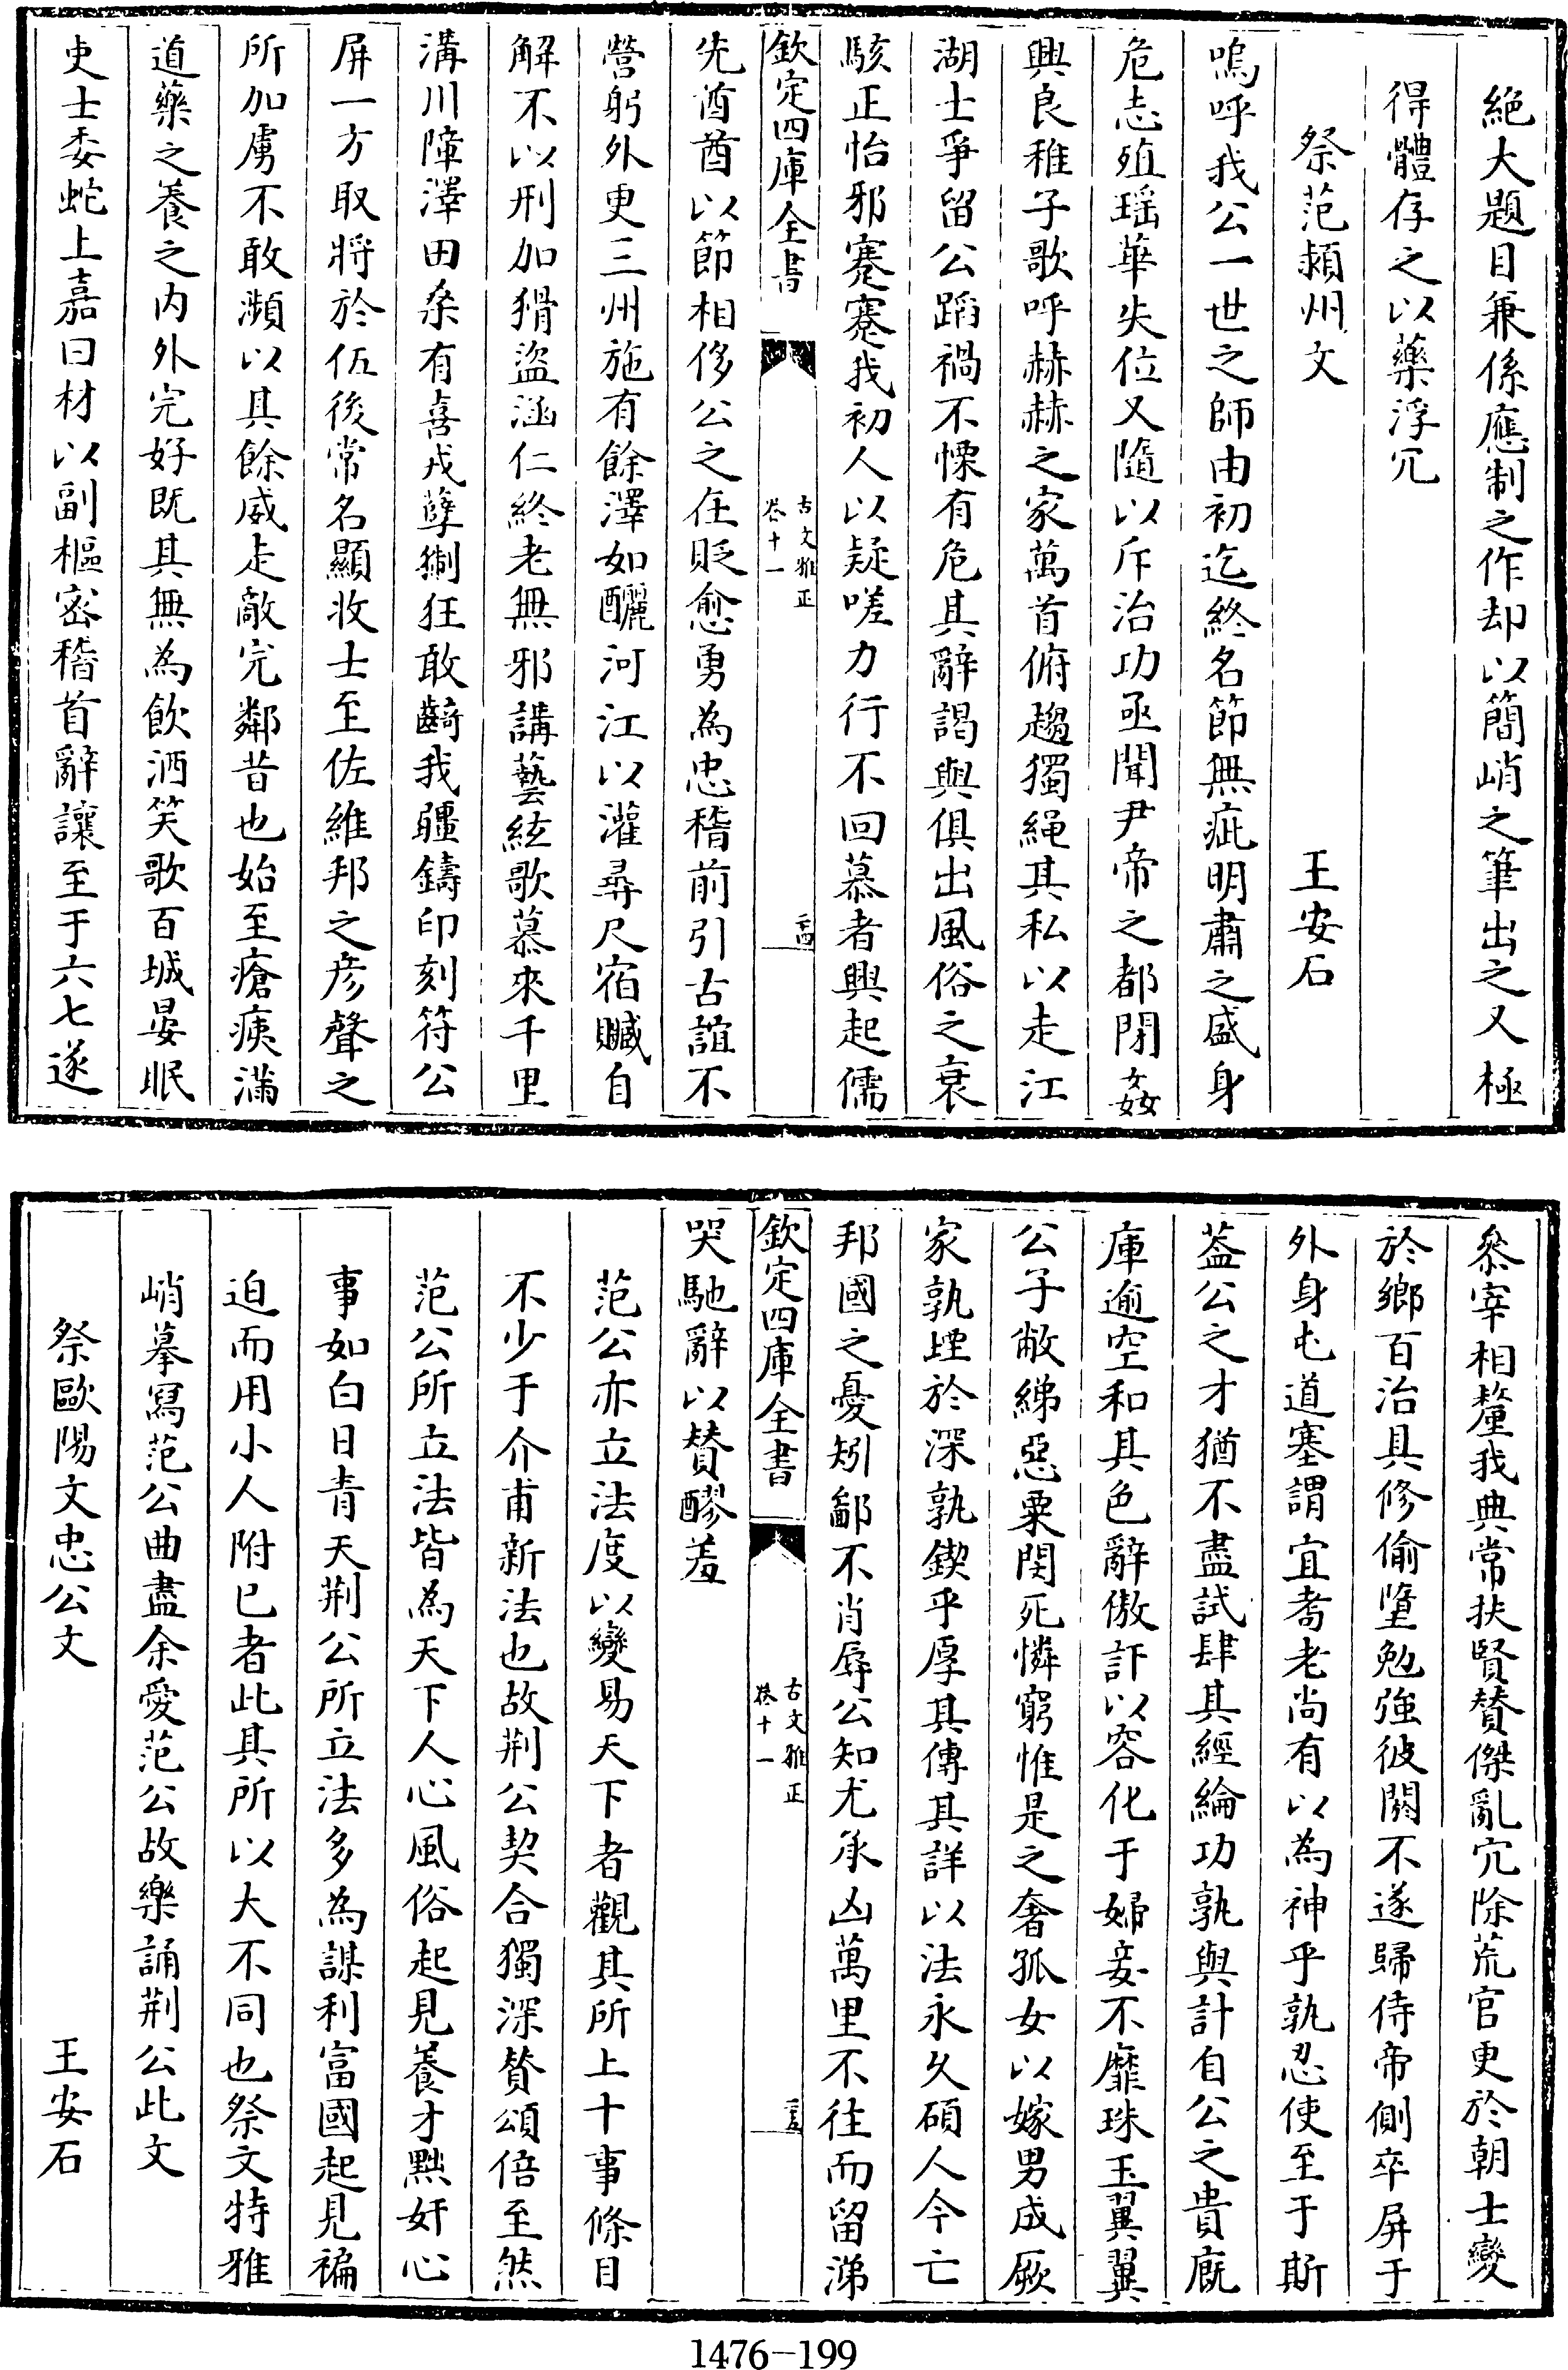 絶大題目兼係應制之作却以簡峭之筆出之又極
得體存之以藥浮冗
祭范潁州文　王安石
嗚呼我公一世之師由初迄終名節無疵明肅之盛身
危志殖瑶華失位又隨以斥治功亟聞尹帝之都閉姦
興良稚子歌呼赫赫之家萬首俯趨獨繩其私以走江
湖士爭留公蹈禍不慄有危其辭謁與俱出風俗之衰
駭正怡邪蹇蹇我初人以疑嗟力行不回慕者興起儒
欽定四庫全書
古文雅正
卷十一
二四
先酋酋以節相侈公之在貶愈勇為忠稽前引古誼不
營躬外更三州施有餘澤如釃河江以灌尋尺宿贓自
解不以刑加猾盜涵仁終老無邪講藝絃歌慕來千里
溝川障澤田桑有喜戎孽猘狂敢齮我疆鑄印刻符公
屏一方取將於伍後常名顯收士至佐維邦之彦聲之
所加虜不敢瀕以其餘威走敵完鄰昔也始至瘡痍滿
道藥之養之内外完好既其無為飲酒笑歌百城晏眠
吏士委蛇上嘉曰材以副樞密稽首辭讓至于六七遂
叅宰相釐我典常扶賢賛傑亂宂除荒官更於朝士變
於鄉百治具修偷墮勉強彼閼不遂歸侍帝側卒屏于
外身屯道塞謂宜耇老尚有以為神乎孰忍使至于斯
葢公之才猶不盡試肆其經綸功孰與計自公之貴廐
庫逾空和其色辭傲訐以容化于婦妾不靡珠玉翼翼
公子敝綈惡粟閔死憐窮惟是之奢孤女以嫁男成厥
家孰堙於深孰鍥乎厚其傳其詳以法永久碩人今亡
邦國之憂矧鄙不肖辱公知尤承凶萬里不往而留涕
欽定四庫全書
古文雅正
卷十一
二五
哭馳辭以賛醪羞
范公亦立法度以變易天下者觀其所上十事條目
不少于介甫新法也故荆公契合獨深賛頌倍至然
范公所立法皆為天下人心風俗起見養才黜奸心
事如白日青天荆公所立法多為謀利富國起見褊
迫而用小人附已者此其所以大不同也祭文特雅
峭摹寫范公曲盡余愛范公故樂誦荆公此文
祭歐陽文忠公文　王安石
1476—199